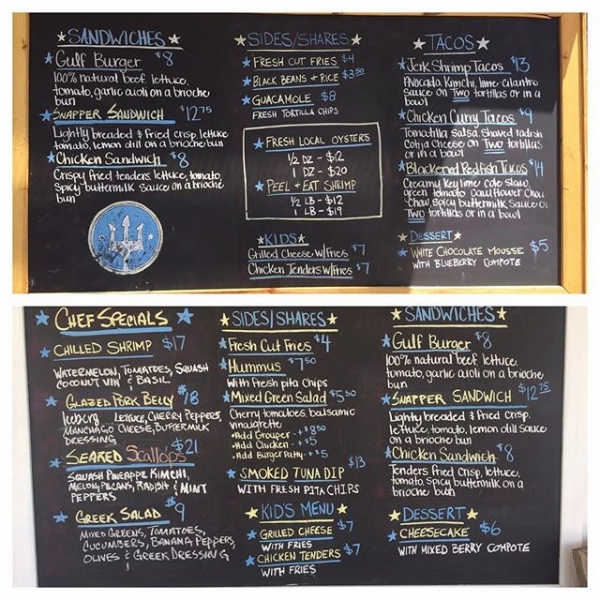 ★SANDWICHES★
★Gulf Burger $8
100% natural beef. lettuce,
tomato, garlic aioli on a brioche
bun
★SNAPPER SANDWICH $12.75
Lightly breaded & fried crisp, lettuce
tomato, lemon dill sauce on a brioche bun
★Chicken Sandwich $8
Crispy fried tenders, lettuce, tomato,
Spicy buttermilk sauce on a brioche
bun
★SIDES/SHARES★
★FRESH CUT FRIES $4
★BLACK BEANS + RICE $3.50
★GUACAMOLE $8
FRESH TORTILLA CHIPS
★FRESH LOCAL OYSTERS
1/2 DZ - $12
1 DZ - $20
★PEEL + EAT SHRIMP
1/2 LB - $12
1 LB - $19
★KIDS★
Grilled Cheese w/Fries $7
Chicken Tenders w/Fries $7
★TACOS★
★Jerk Shrimp Tacos $13
Avocado, Kimchi, lime-cilantro
Sauce on Two tortillas or in a
bowl
★Chicken Curry Tacos $9
Tomatilla Salsa, Shaved radish
Cotija Cheese on Two tortillas
or in a bowl
★Blackened Redfish Tacos $14
Creamy Key lime cole slaw,
green tomato cauliflower Chow
Chow, Spicy buttermilk Sauce on
Two tortillas or in a bowl
★DESSERT★
★WHITE CHOCOLATE MOUSSE $5
WITH BLUEBERRY COMPOTE
★CHEF SPECIALS★
★CHILLED SHRIMP $17
WATERMELON, TOMATOES, SQUASH
COCONUT VIN & BASIL
★GLAZED PORK BELLY $18
Iceberg LETTUCE, CHERRY PEPPERS,
MANCHAGO CHEESE, BUTTERMILK
DRESSING
★SEARED SCALLOPS $21
SQUASH PINEAPPLE KIMCHI,
MELON, PECANS, RADISH & MINT
PEPPERS
★GREEK SALAD $9
MIXED GREENS, TOMATOES,
CUCUMBERS, BANANA PEPPERS,
OLIVES & GREEK DRESSING
★SIDES/SHARES★
★Fresh Cut Fries $4
★Hummus $7.50
With Fresh pita Chips
★Mixed Green Salad $5.50
Cherry tomatoes balsamic
vinaigrette
•Add Grouper - +$8.50
•Add Chicken - +$5
•Add Burger Patty - +$5
★SMOKED TUNA DIP $13
WITH FRESH PITA CHIPS
★KID'S MENU★
★GRILLED CHEESE $7
WITH FRIES
★CHICKEN TENDERS $7
WITH FRIES
★SANDWICHES★
★Gulf Burger $8
100% natural beef lettuce,
tomato, garlic aioli on a brioche
bun
★SNAPPER SANDWICH $12.75
Lightly breaded & Fried Crisp.
lettuce, tomato, lemon dill Sauce
on a brioche bun
★Chicken Sandwich $8
Tenders Fried Crisp, lettuce,
tomato Spicy buttermilk Sauce
on a brioche bun
★DESSERT★
★CHEESECAKE $6
WITH MIXED BERRY COMPOTE